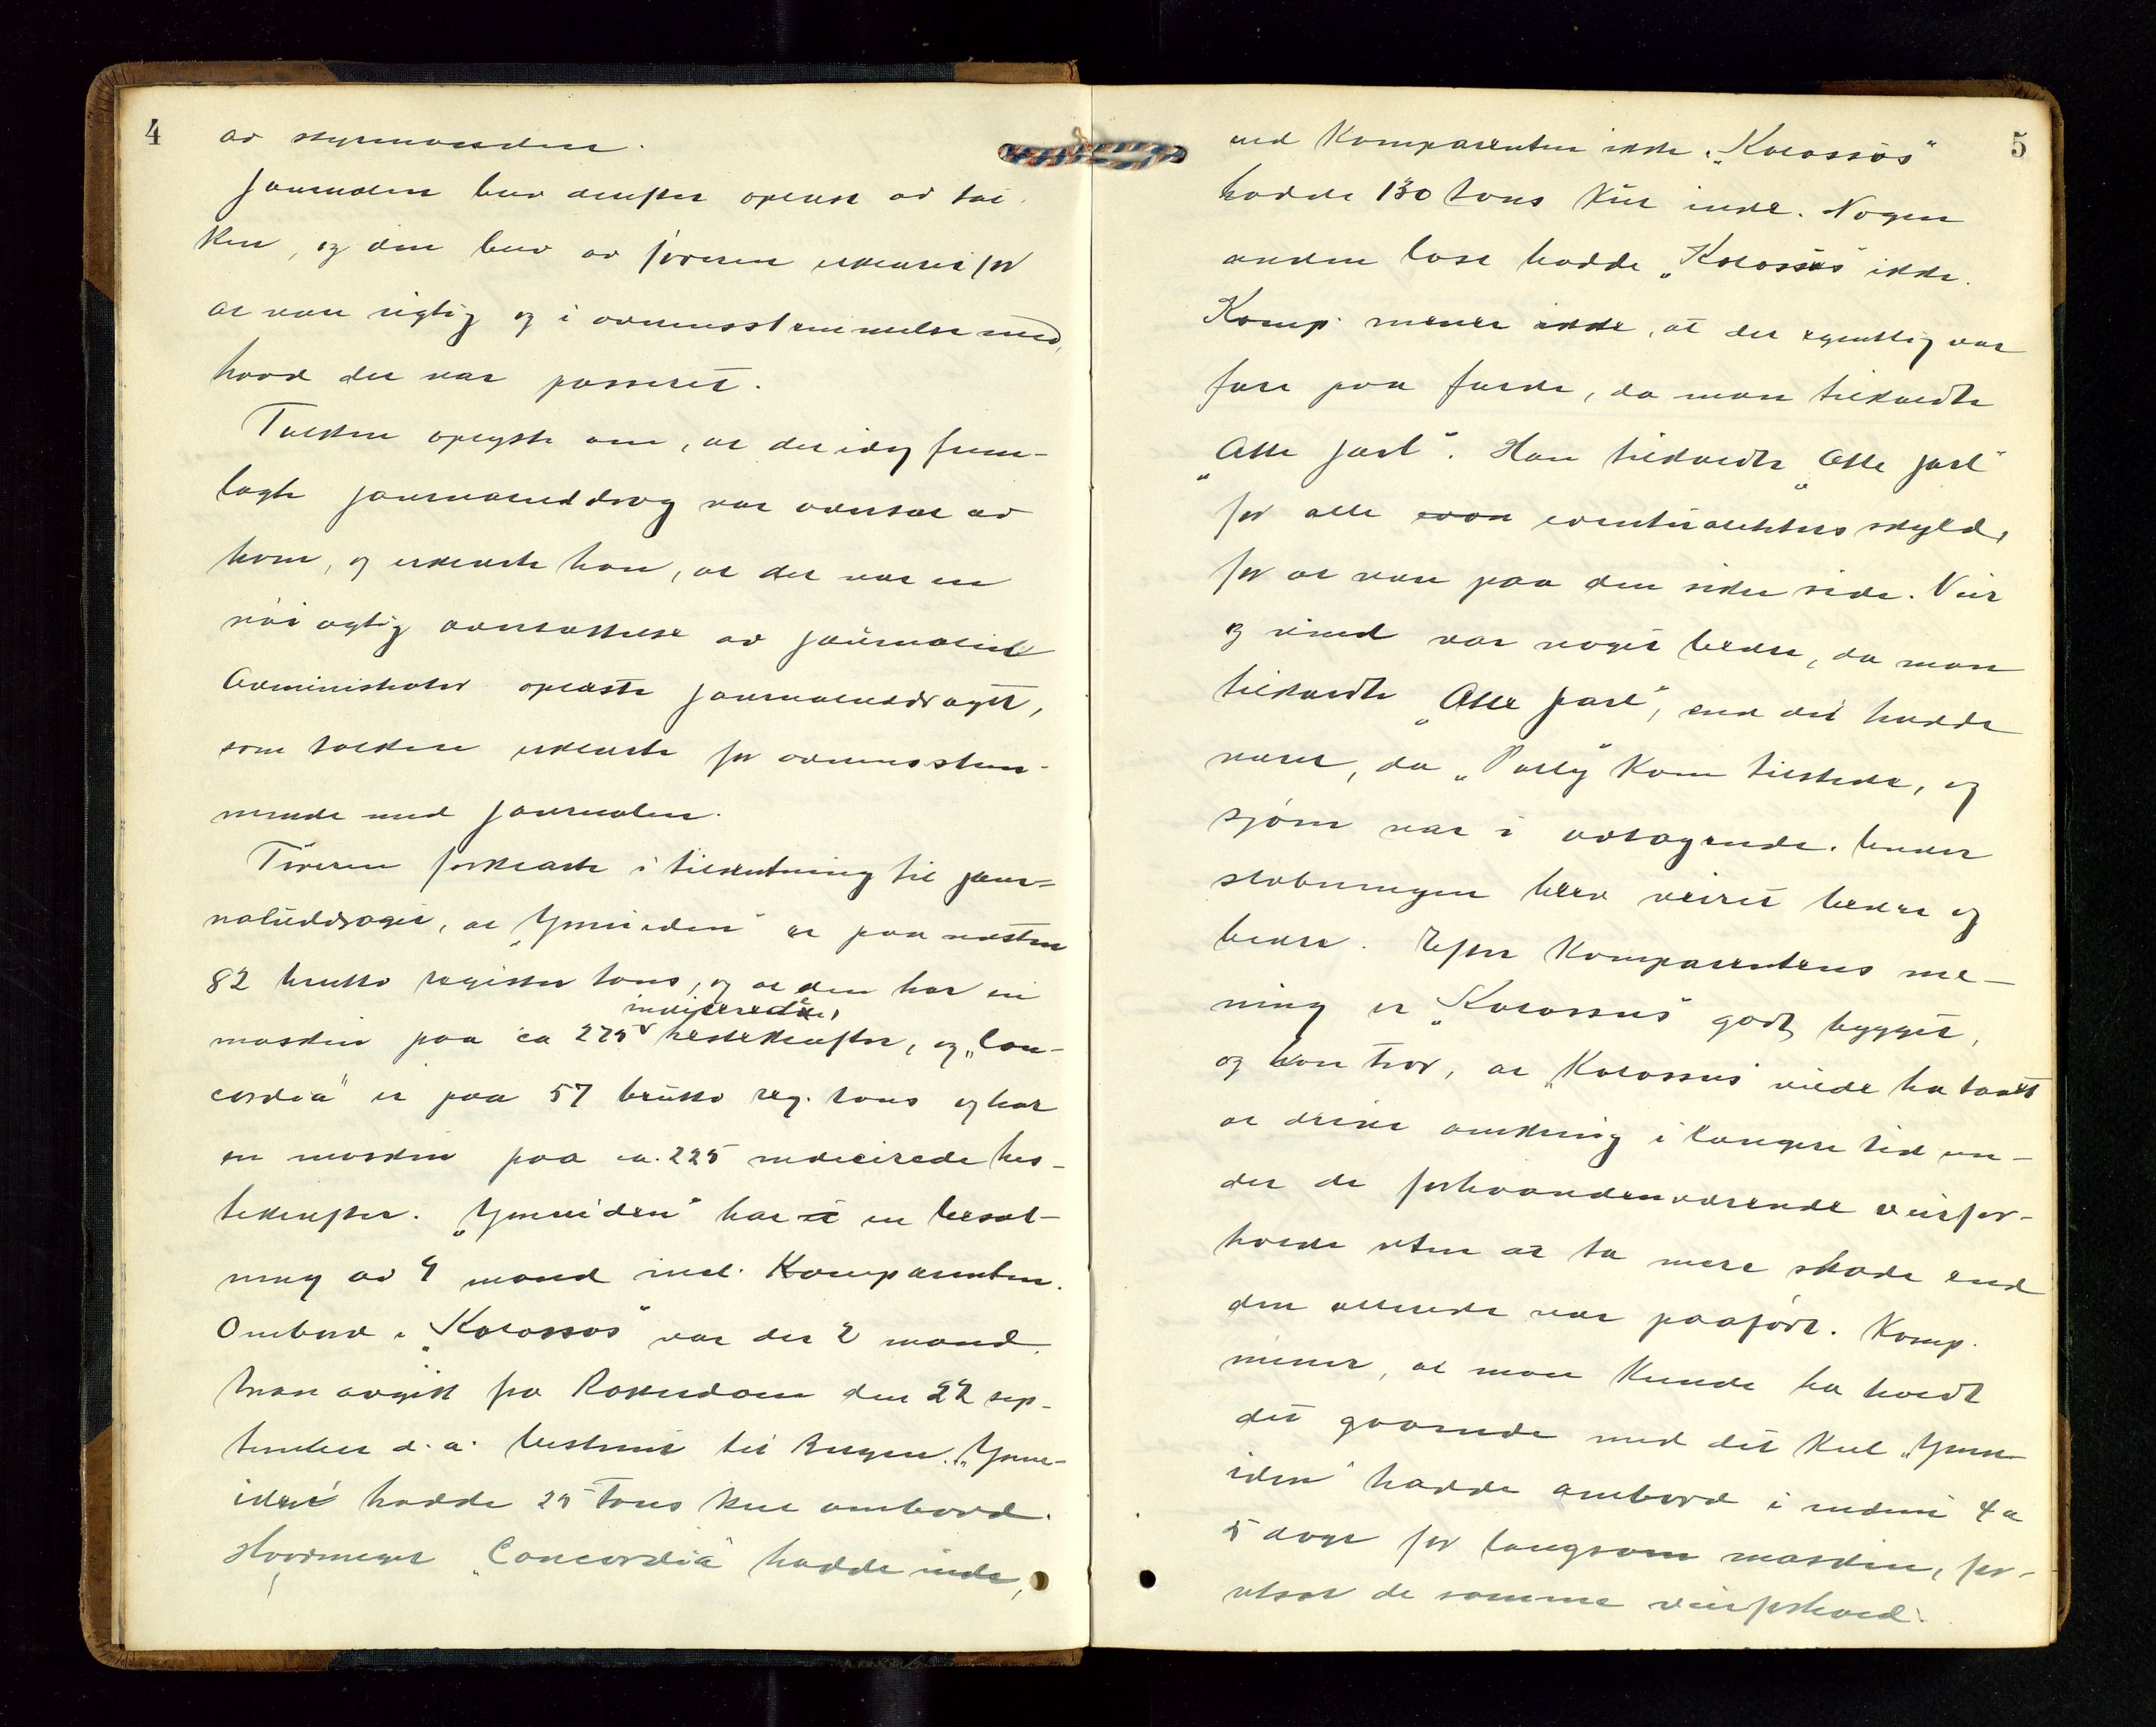 4
av styrmanden.
Journalen blev derefter oplæst av tol-
ken, og den blev av føreren erklæret for
at være rigtig og i overensstemmelse med,
hvad der var passeret.
Tolken oplyste om, at det idag frem-
lagte journaluddrag var oversat av
ham, og erklærte han, at det var en
nöiagtig oversættelse av journalen
Administrator oplæste journaluddraget,
som tolken erklærte for overensstem-
mende med journalen.
Føreren forklarte i tilslutning til jour-
naluddraget, at "Ymuiden" er paa næsten
82 brutto register tons, og at den har en
maskin paa ca 275 indicerede hestekræfter, og "Con-
cordia" er paa 57 brutto reg. tons og har
en maskin paa ca. 225 indicirede hes-
tekræfter. "Ymuiden" har en besæt-
ning av 9 mand incl. Komparenten.
Ombord i "Kolossus" var der 2 mand.
Man avgik fra Rotterdam den 22 sep-
tember d.a. bestemt til Bergen. "Ymu-
iden" hadde 25 tons kul ombord.
Hvormeget "Concordia" hadde inde,
5
ved Komparenten ikke. "Kolossus"
hadde 130 tons kul inde. Nogen
anden last hadde "Kolossus" ikke.
Komp. mener ikke, at det egentlig var
fare paa færde, da man tilkaldte
"Atle Jarl". Han tilkaldte "Atle Jarl"
for alle even eventualiteters skyld,
for at være paa den sikre side. Veir
og vind var noget bedre, da man
tilkaldte "Atle Jarl", end det hadde
været, da "Parly" kom tilstede, og
sjøen var i avtagende. Under
slæbningen blev veiret bedre og
bedre. Efter Komparentens me-
ning er "Kolossus" godt bygget,
og han tror, at "Kolossus" vilde ha taalt
at drive omkring i længere tid un-
der de forhaandenværende veirfor-
holde uten at ta mere skade end
den allerede var paaført. Komp.
mener, at man kunde ha holdt
det gaaende med det kul "Ymu-
iden" hadde ombord i endnu 4 a
5 døgn for langsom maskin, for-
utsat de samme veirforhold.